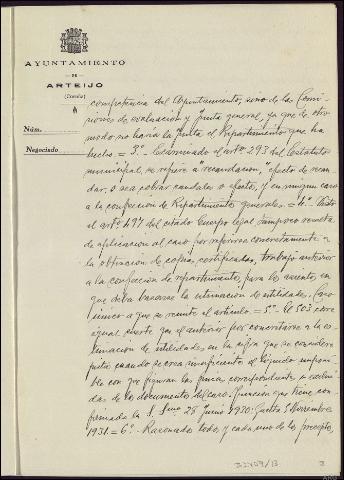 AYUNTAMIENTO
DE
ARTEIJO
(Coruña)
Núm.
Negociado
competencia del Ayuntamiento, sino de las Comi-
siones de evaluación y Junta general, ya que de otro
modo no haría la Junta el Repartimiento que ha
hecho = 3º - Examinado el artº 293 del Estatuto
municipal, se refiere a "recaudación," efecto de recau-
dar, o sea cobrar caudales o efectos, y en ningún caso
a la confección de Repartimientos generales. = 4º - Visto
el artº 497 del citado Cuerpo legal tampoco resulta
de aplicación al caso por referirse concretamente a
la obtención de copias certificadas, trabajo anterior
a la confección de repartimiento, para los asientos, en
que deba basarse la estimación de utilidades.
a que se remite el artículo = 5º - El 505 corre
igual suerte que el anterior por concretarse a la es-
timación de utilidades en la cifra que se considere
justa cuando se crea insuficiente el líquido imponi-
ble con que figuran las fincas correspondientes
das de los documentos del caso. Opinión que tiene con-
firmada la S. 28 Junio 1930: Gaceta 5 Noviembre
1931. = 6º - Razonados todos y cada uno de los preceptos